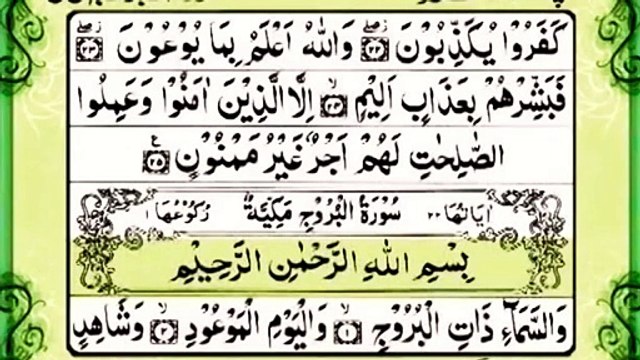 كَفَرُوۡا يُكَذِّبُوۡنَ ۲۲ وَاللّٰهُ اَعۡلَمُ بِمَا يُوۡعُوۡنَ ۲۳
فَبَشِّرۡهُمۡ بِعَذَابٍ اَلِيۡمٍ ۲۴ اِلَّا الَّذِيۡنَ اٰمَنُوۡا وَعَمِلُوا
الصّٰلِحٰتِ لَهُمۡ اَجۡرٌ غَيۡرُ مَمۡنُوۡنٍ ۲۵
اٰيَاتُهَا ۲۲ سُوۡرَةُ الۡبُرُوۡجِ مَكِّيَّةٌ رُكُوۡعُهَا ۱
بِسۡمِ اللّٰهِ الرَّحۡمٰنِ الرَّحِيۡمِ
وَالسَّمَآءِ ذَاتِ الۡبُرُوۡجِ ۱ وَالۡيَوۡمِ الۡمَوۡعُوۡدِ ۲ وَشَاهِدٍ